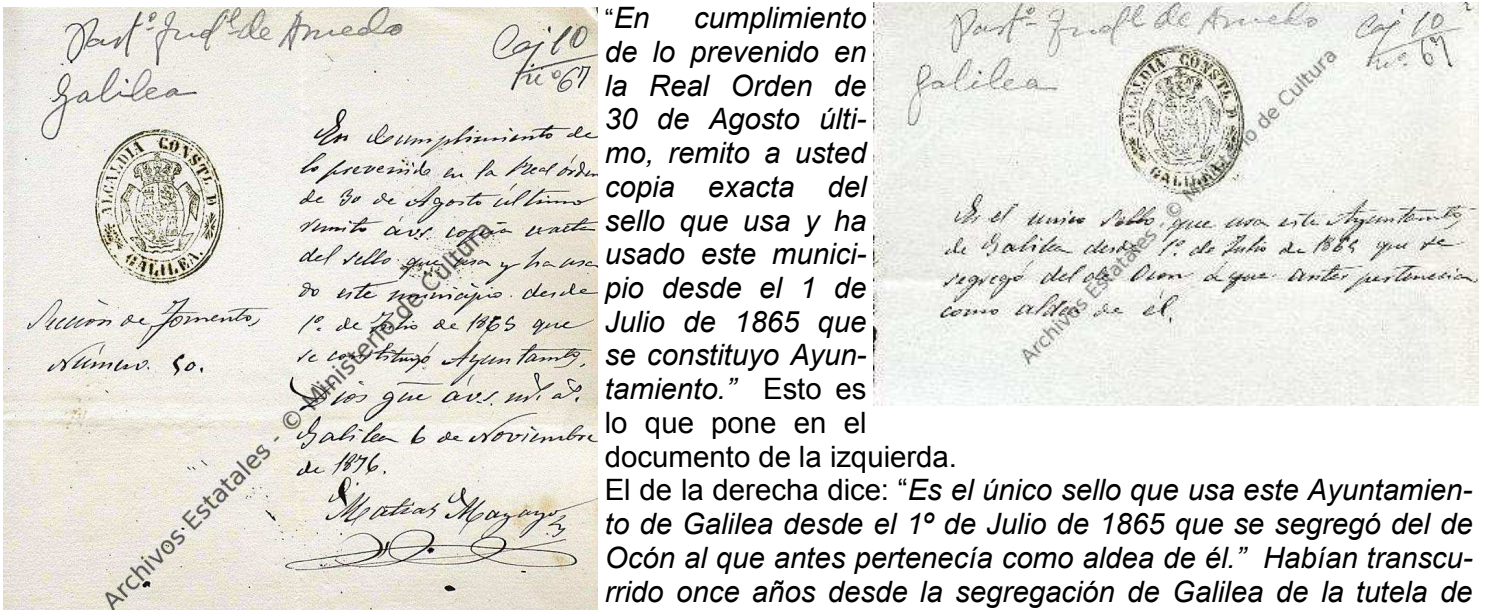 Part.º Jud.l de Arnedo
Caj 10
nº 67
Galilea
ALCALDIA CONSTL D
GALILEA.
En cumplimiento de
lo prevenido en la Real órden
de 30 de Agosto último
remito á vs. copia exacta
del sello que usa y ha usa
do este municipio desde
1º. de Julio de 1865 que
se constituyó Ayuntamto.
Dios gue á vs. ms. as.
Galilea 6 de Noviembre
de 1876.
Matias Mayayo
Sección de Fomento,
Número. 50.
Archivos Estatales - © Ministerio de Cultura
“En cumplimiento
de lo prevenido en
la Real Orden de
30 de Agosto últi-
mo, remito a usted
copia exacta del
sello que usa y ha
usado este munici-
pio desde el 1 de
Julio de 1865 que
se constituyo Ayun-
tamiento.” Esto es
lo que pone en el
documento de la izquierda.
Part.º Jud.l de Arnedo
Caj 10
nº. 67
Galilea
ALCALDIA CONSTL D
GALILEA.
Es el unico sello, que usa este Ayuntamto.
de Galilea desde 1º. de Julio de 1865 que se
segregó del de Ocon a que antes pertenecia
como aldea de él.
Archivos Estatales - © Ministerio de Cultura
El de la derecha dice: “Es el único sello que usa este Ayuntamien-
to de Galilea desde el 1º de Julio de 1865 que se segregó del de
Ocón al que antes pertenecía como aldea de él.” Habían transcu-
rrido once años desde la segregación de Galilea de la tutela de